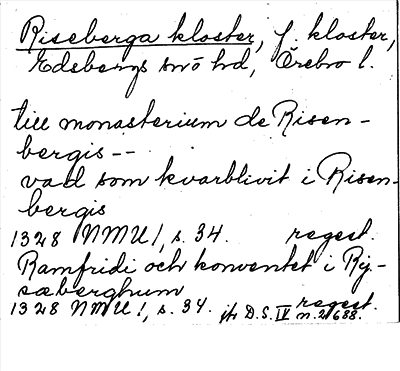 Riseberga kloster, f. kloster,
Edsbergs sn o hd, Örebro l.
till monasterium de Risen-
bergis --
vad som kvarblivit i Risen-
bergis
1328 NMU 1, s. 34. regest.
Ramfridi och konventet i Ry-
sæberghum
1328 NMU 1, s. 34. regest.
jfr D.S. IV n. 2688.